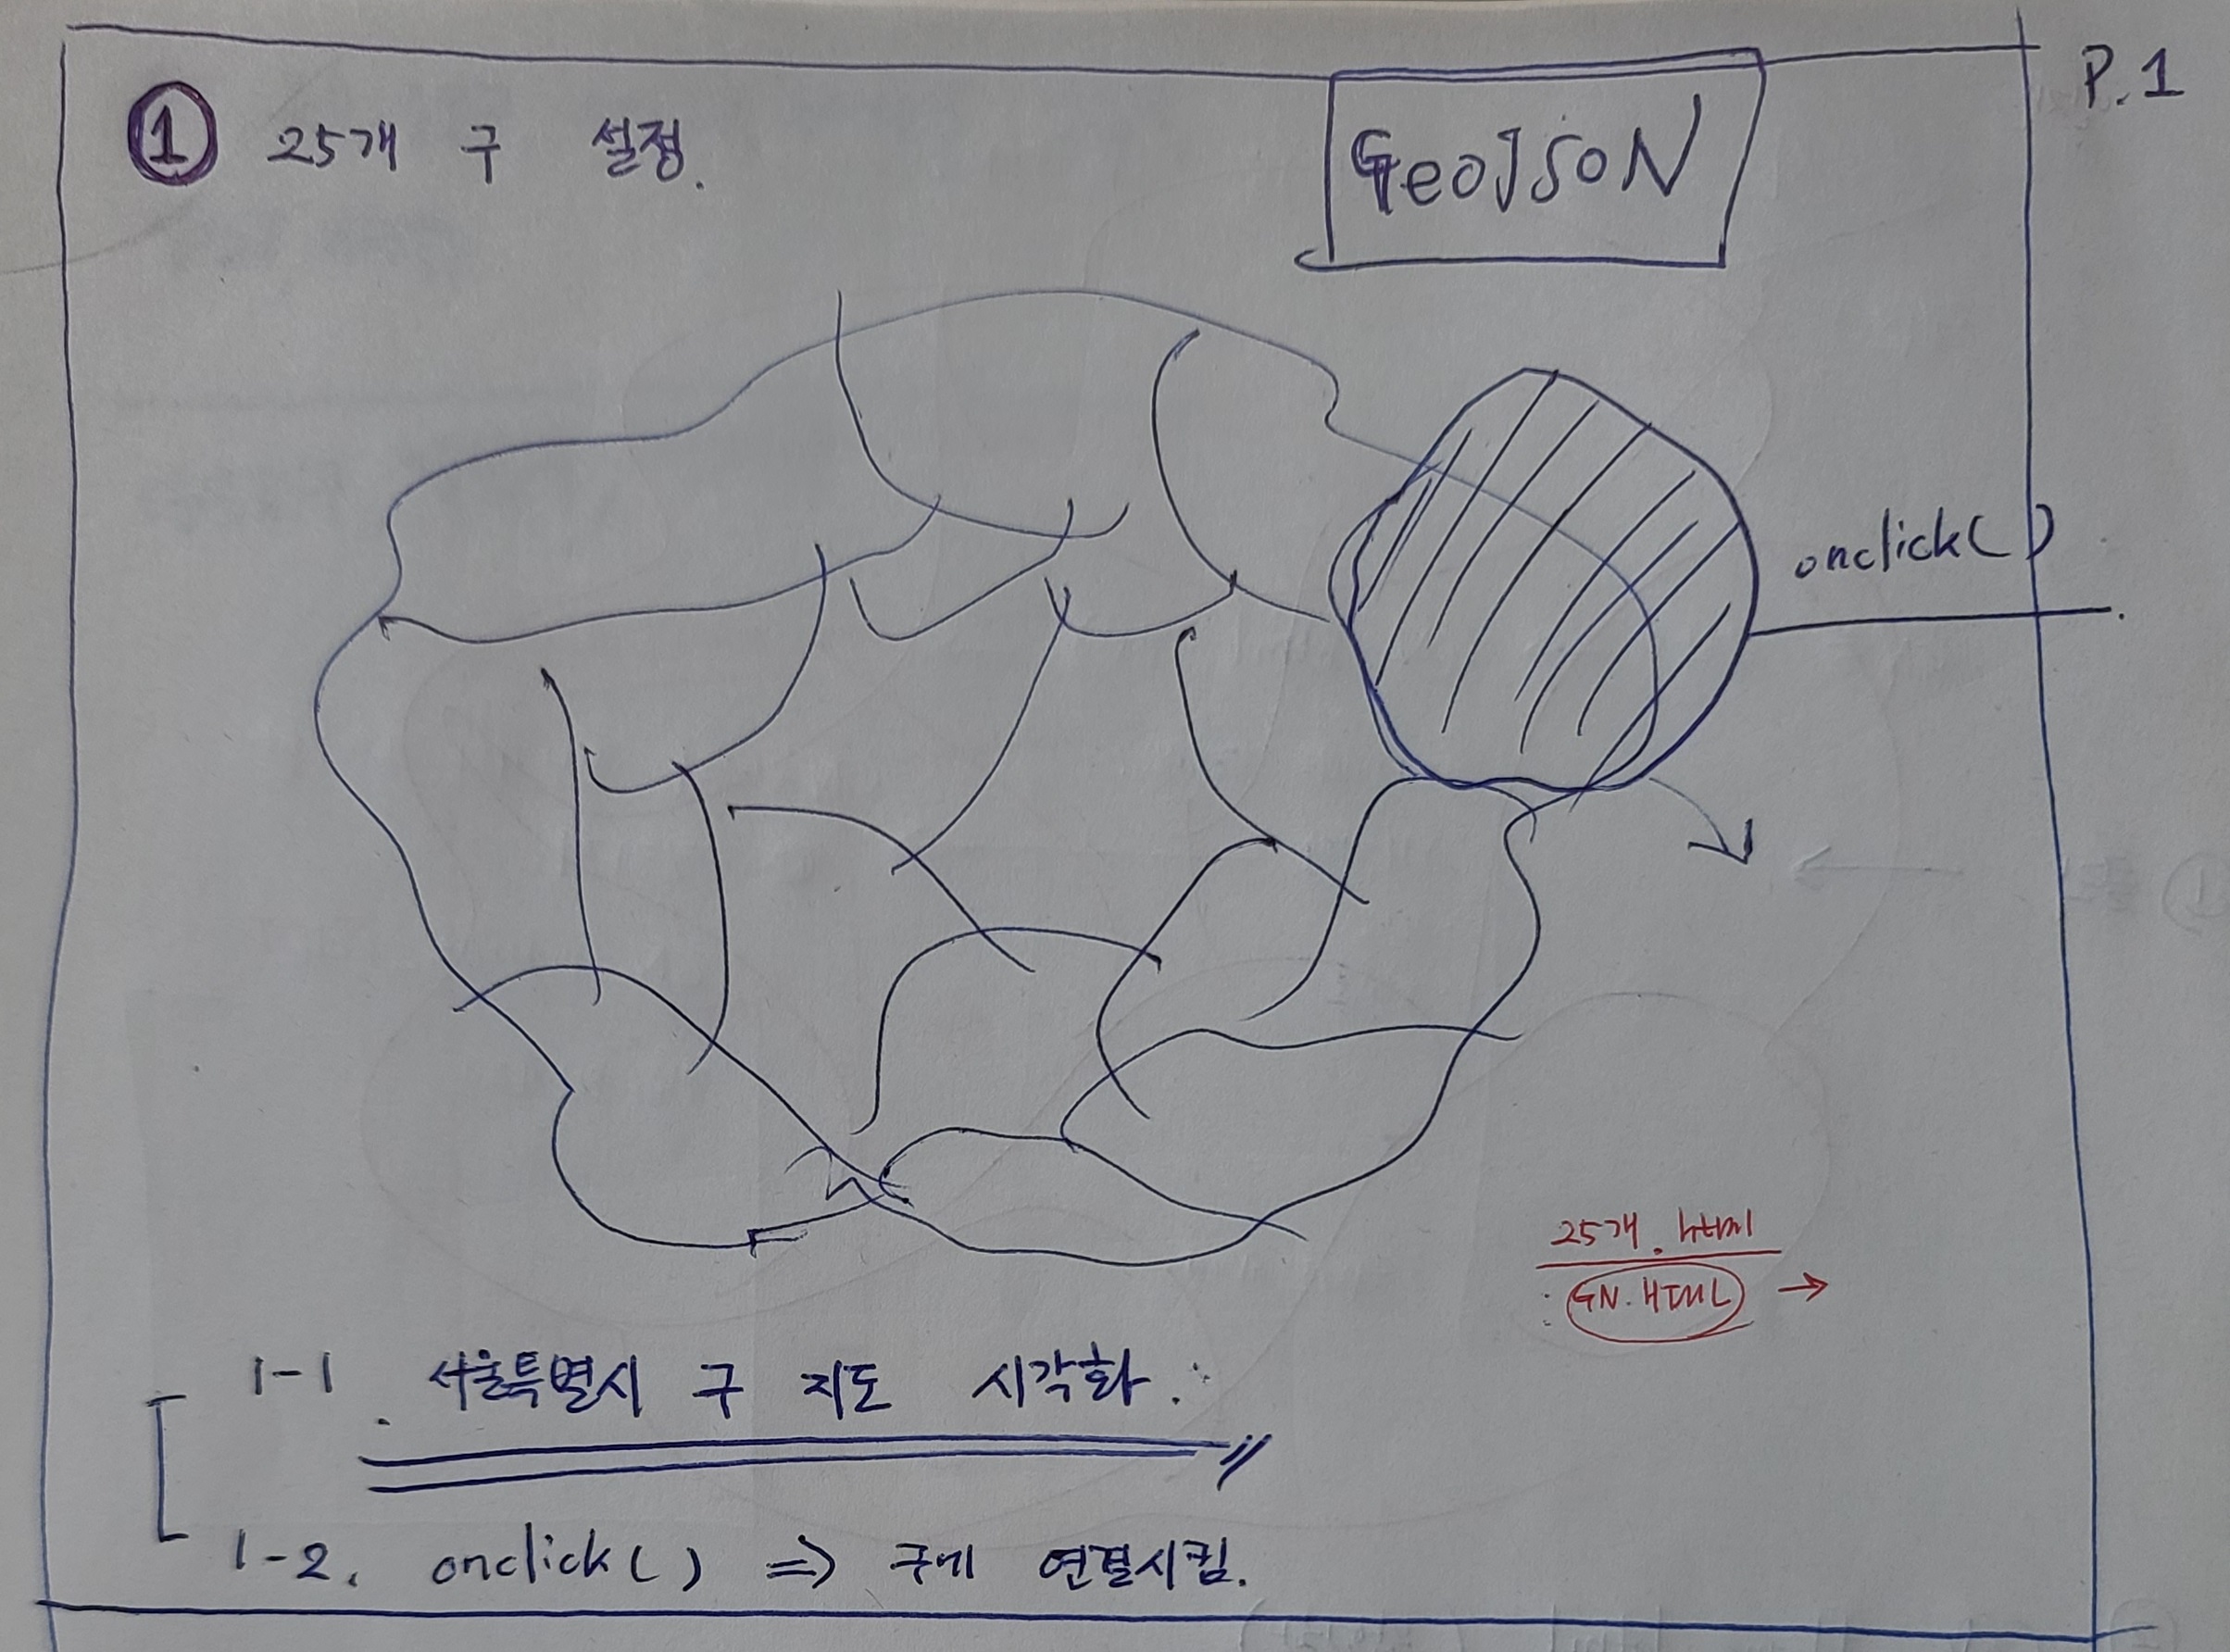 P.1
① 25개 구 설정.
GeoJSoN
onclick( )
25개. html
GN. HTML →
1-1. 서울특별시 구 지도 시각화.
1-2. onclick( ) => 구에 연결시킴.